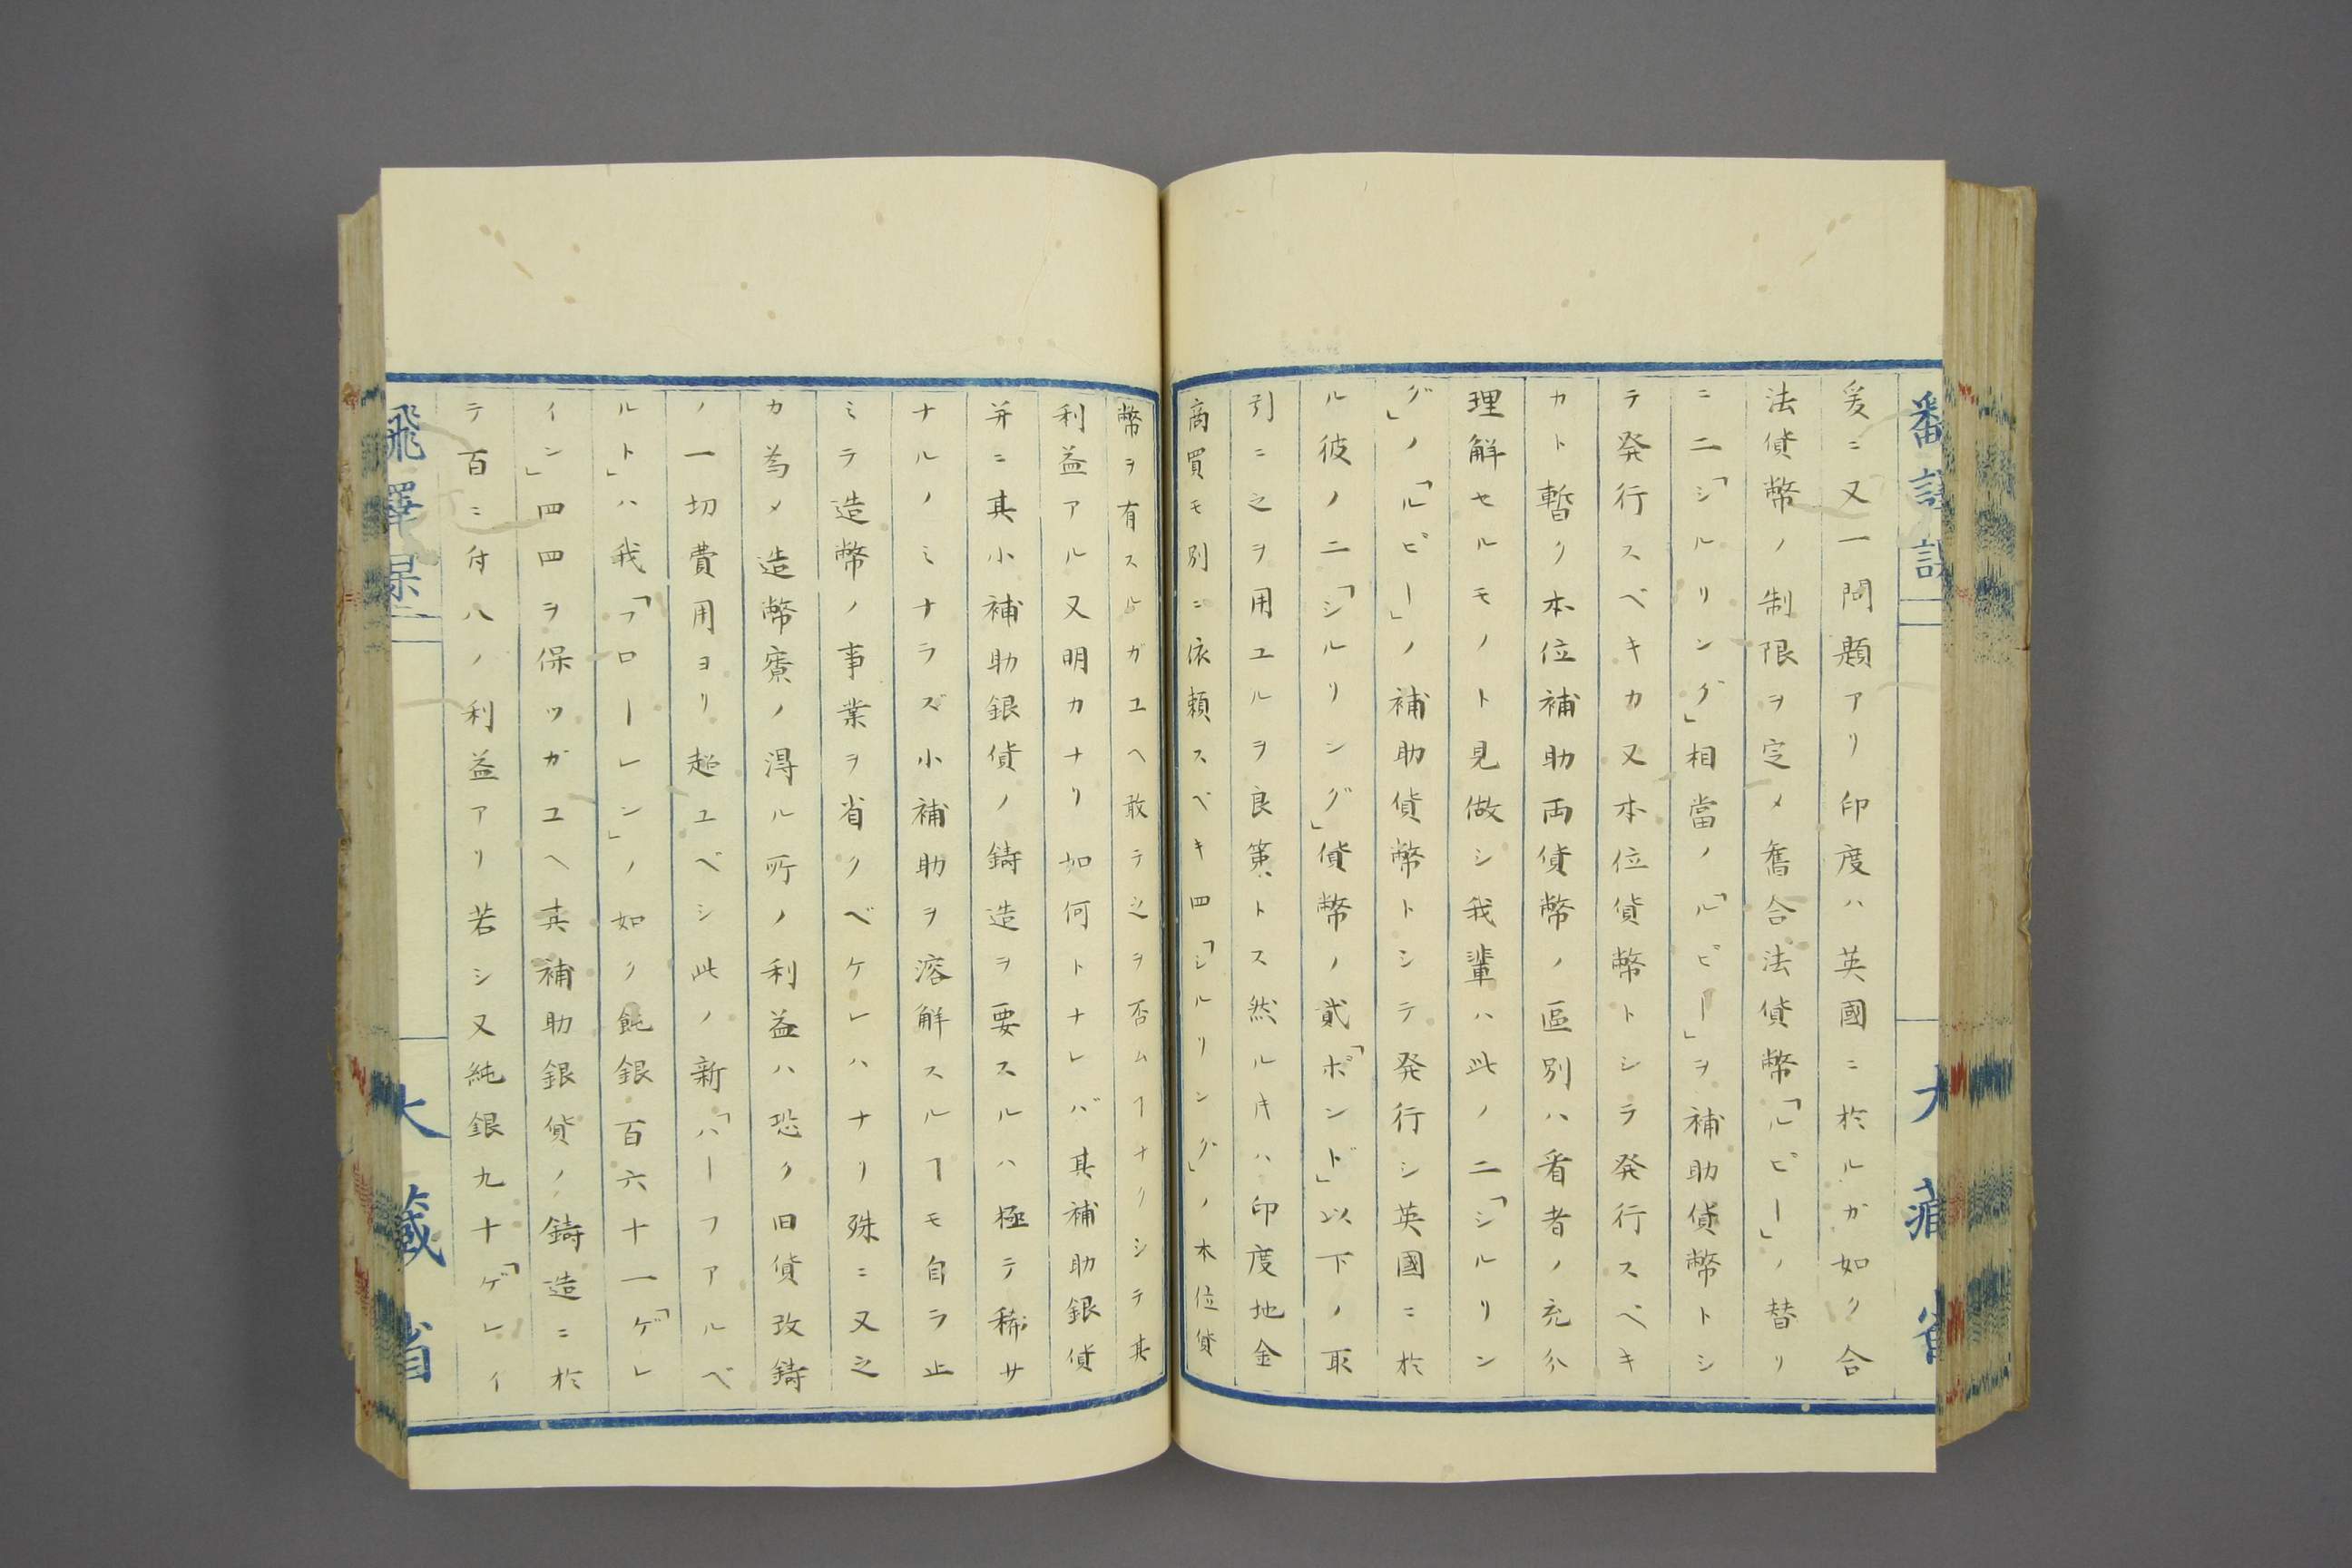 爰ニ又一問題アリ印度ハ英國ニ於ルガ如ク合
法貨幣ノ制限ヲ定メ舊合法貨幣「ルピー」ノ替リ
ニ二「シルリング」相當ノ「ルピー」ヲ補助貨幣トシ
テ発行スベキカ又本位貨幣トシラ発行スベキ
カト暫ク本位補助両貨幣ノ區別ハ看者ノ充分
理解セルモノト見做シ我輩ハ此ノ二「シルリン
グ」ノ「ルピー」ノ補助貨幣トシテ発行シ英國ニ於
ル彼ノ二「シルリング」貨幣ノ貳「ポンド」以下ノ取
引ニ之ヲ用ユルヲ良策トス然ルキハ印度地金
商買モ別ニ依頼スベキ四「シルリング」ノ本位貨
幣ヲ有スルガユヘ敢テ之ヲ否ムヿナクシテ其
利益アル又明カナリ如何トナレバ其補助銀貨
并ニ其小補助銀貨ノ鋳造ヲ要スルハ極テ稀サ
ナルノミナラズ小補助ヲ溶解スルヿモ自ラ止
ミラ造幣ノ事業ヲ省クベケレハナリ殊ニ又之
カ為メ造幣寮ノ得ル所ノ利益ハ恐ク旧貨改鋳
ノ一切費用ヨリ超ユベシ此ノ新「ハーフアルベ
ルト」ハ我「フローレン」ノ如ク純銀百六十一「ゲレ
イン」四四ヲ保ツガユヘ其補助銀貨ノ鋳造ニ於
テ百ニ付八ノ利益アリ若シ又純銀九十「ゲレイ
大藏省